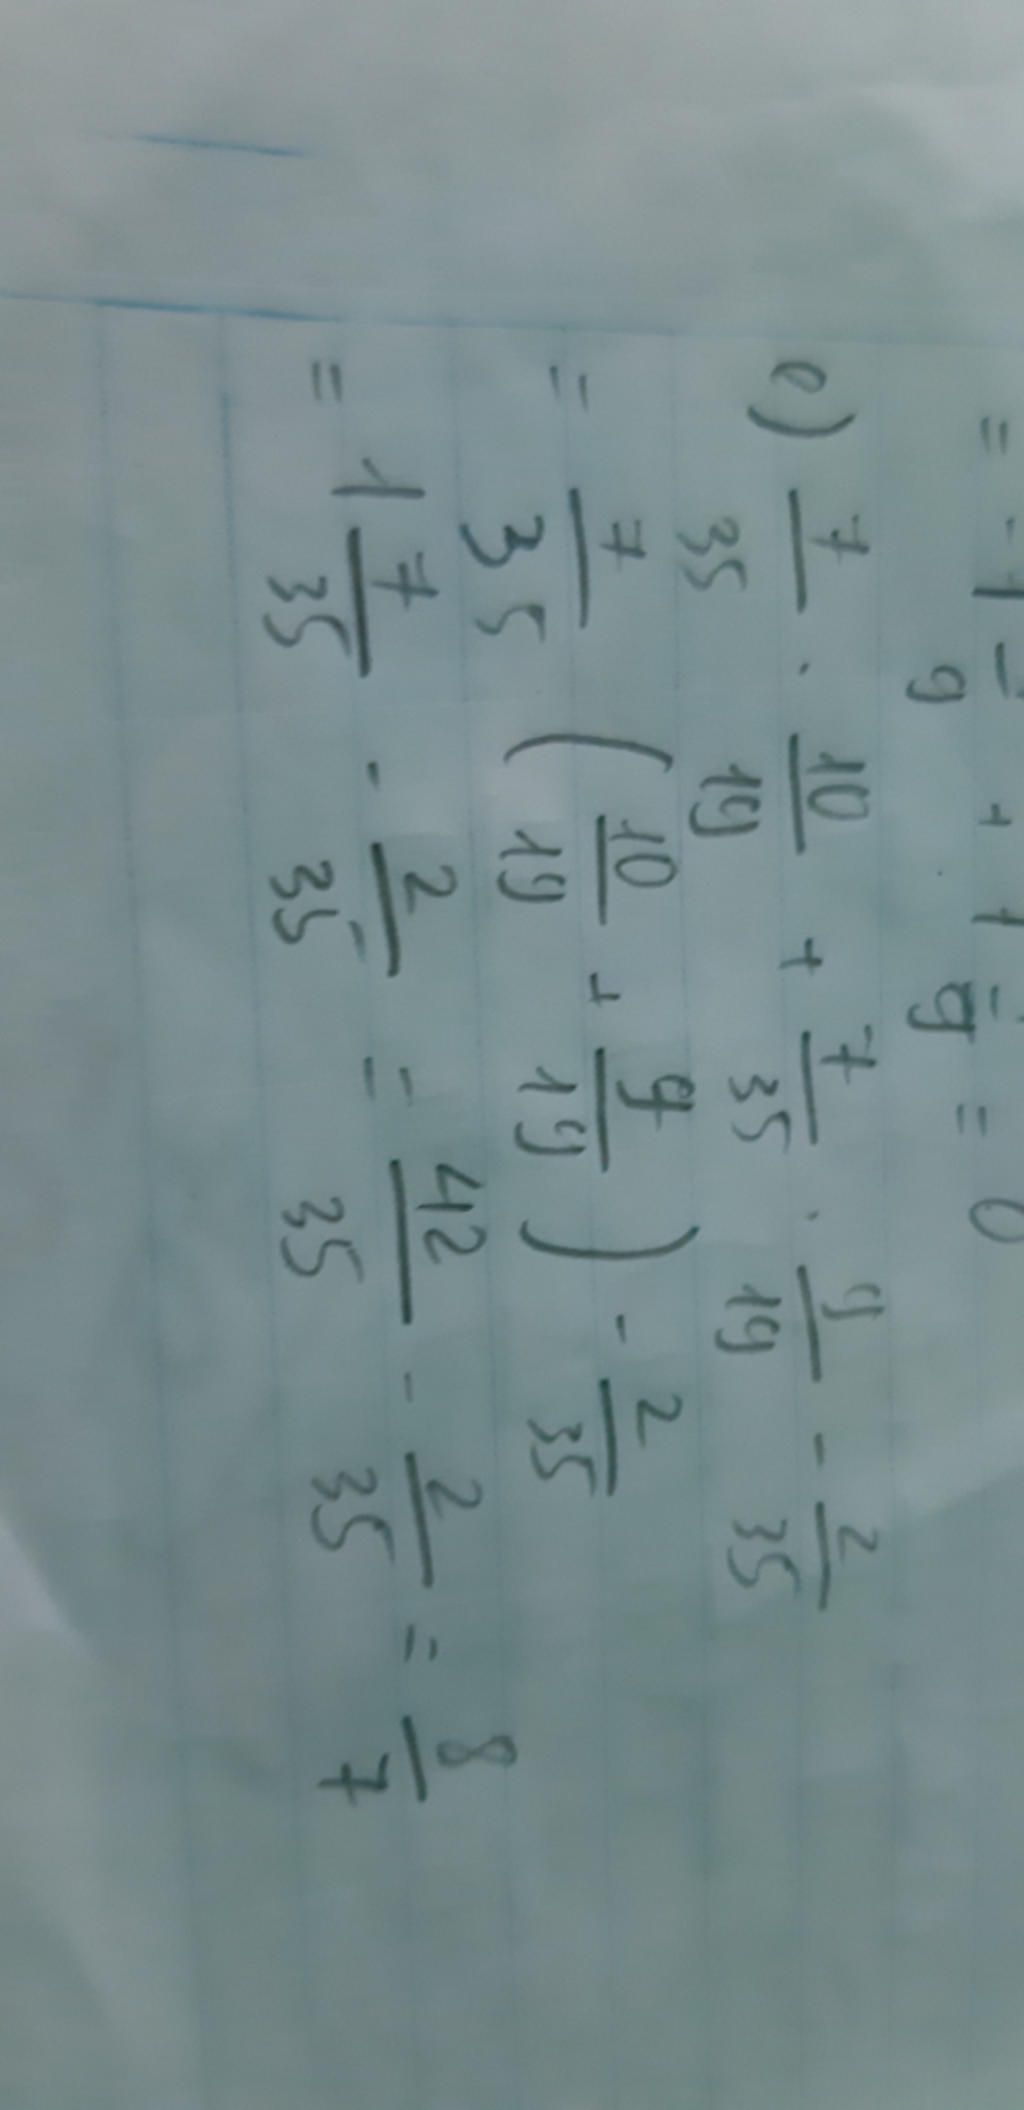 = -1/9 + 1/9 = 0
e) 7/35 . 10/19 + 7/35 . 9/19 - 2/35
= 7/35 (10/19 + 9/19) - 2/35
= 1 7/35 - 2/35 = 42/35 - 2/35 = 8/7